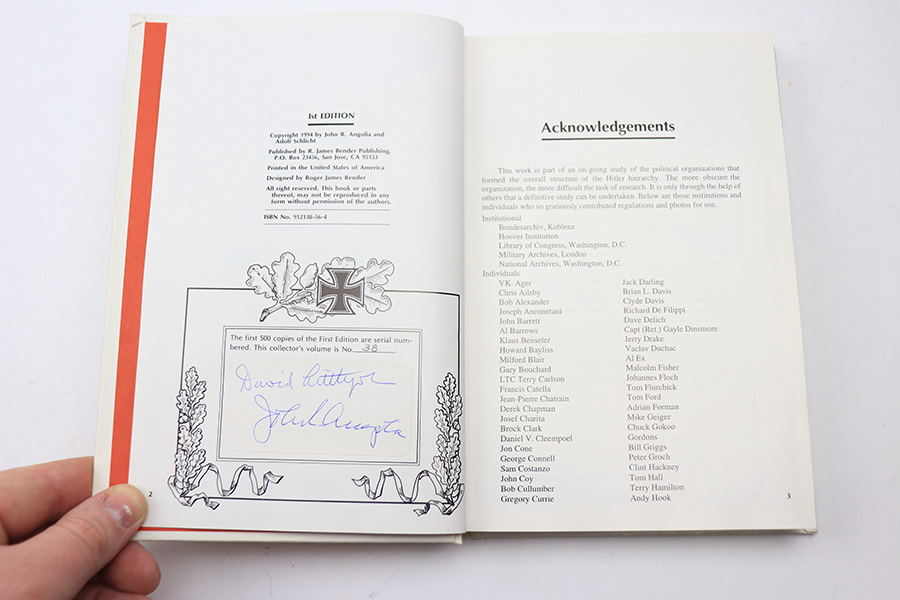 1st EDITION
Copyright 1994 by John R. Angolia and
Adolf Schlicht
Published by R. James Bender Publishing,
P.O. Box 23456, San Jose, CA 95153
Printed in the United States of America
Designed by Roger James Bender
All right reserved. This book or parts
thereof, may not be reproduced in any
form without permission of the authors.
ISBN No. 912138-56-4
The first 500 copies of the First Edition are serial num-
bered. This collector's volume is No. 38.
David
John R Angolia
2
Acknowledgements
This work is part of an on-going study of the political organizations that
formed the overall structure of the Hitler hierarchy. The more obscure the
organization, the more difficult the task of research. It is only through the help of
others that a definitive study can be undertaken. Below are those institutions and
individuals who so gratiously contributed regulations and photos for use.
Institutional
Bundesarchiv, Koblenz
Hoover Institution
Library of Congress, Washington, D.C.
Military Archives, London
National Archives, Washington, D.C.
Individuals
VK. Ager
Chris Ailsby
Bob Alexander
Joseph Anconetani
John Barrett
Al Barrows
Klaus Benseler
Howard Bayliss
Milford Blair
Gary Bouchard
LTC Terry Carlson
Francis Catella
Jean-Pierre Chatrain
Derek Chapman
Josef Charita
Brock Clark
Daniel V. Cleempoel
Jon Cone
George Connell
Sam Costanzo
John Coy
Bob Cullumber
Gregory Currie
Jack Darling
Brian L. Davis
Clyde Davis
Richard De Filippi
Dave Delich
Capt (Ret.) Gayle Dinsmore
Jerry Drake
Vaclav Duchac
Al Ex
Malcolm Fisher
Johannes Floch
Tom Flurchick
Tom Ford
Adrian Forman
Mike Geiger
Chuck Gokoo
Gordons
Bill Griggs
Peter Groch
Clint Hackney
Tom Hall
Terry Hamilton
Andy Hook
3